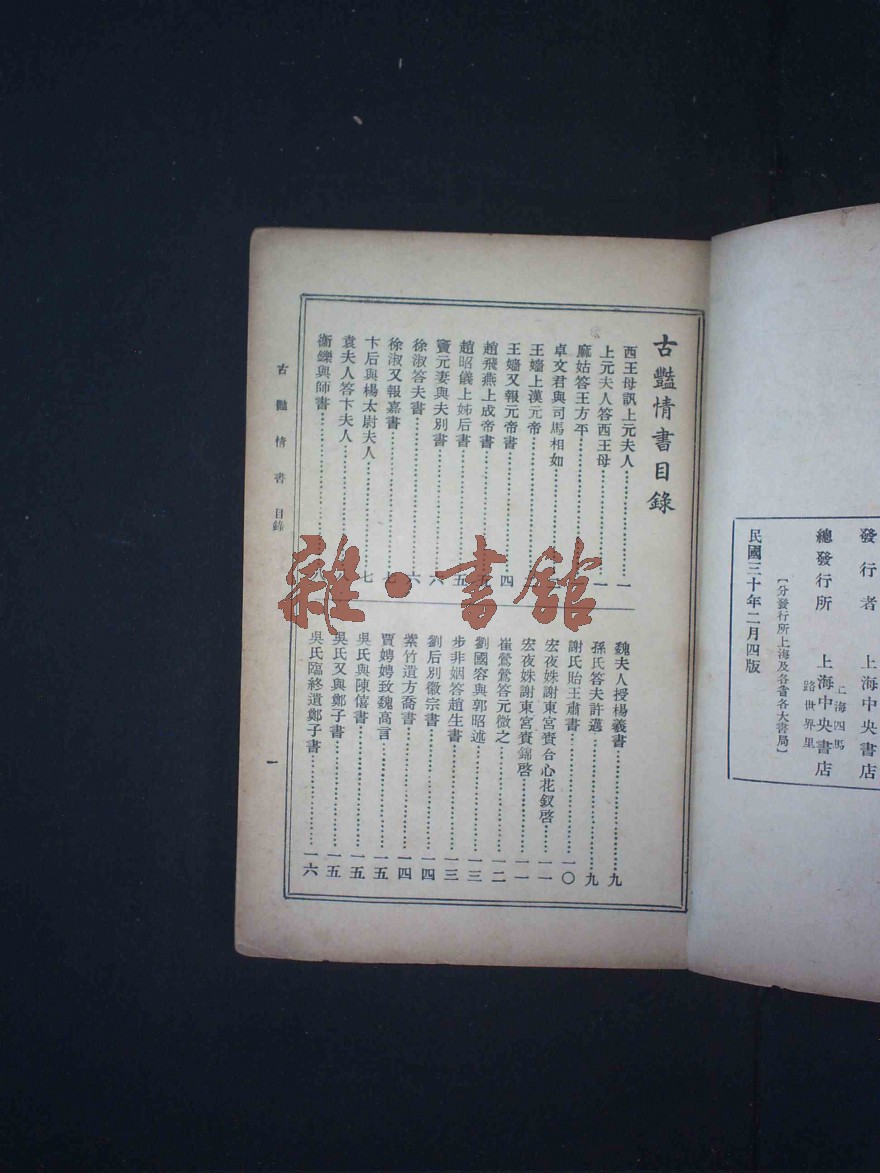 發行者 上海中央書店
上海四馬路世界里
總發行所 上海中央書店
【分發行所上海及各省各大書局】
民國三十年二月四版
古豔情書目錄
西王母訊上元夫人……一
上元夫人答西王母……一
麻姑答王方平
卓文君與司馬相如
王嬙上漢元帝
王嬙又報元帝書……四
趙飛燕上成帝書……五
趙昭儀上姊后書……五
竇元妻與夫別書……六
徐淑答夫書……六
徐淑又報嘉書……七
卞后與楊太尉夫人……七
袁夫人答卞夫人
衞鑠與師書……八
魏夫人授楊羲書……九
孫氏答夫許邁……九
謝氏貽王肅書……一〇
宏夜姝謝東宮賚合心花釵啓……一一
宏夜姝謝東宮賚錦啓……一一
崔鶯鶯答元微之……一二
劉國容與郭昭述……一三
步非姻答趙生書……一三
劉后別徽宗書……一四
紫竹遺方喬書……一四
賈娉娉致魏高言……一五
吳氏與陳僖書……一五
吳氏又與鄭子書……一五
吳氏臨終遺鄭子書……一六
古豔情書 目錄
一
雜·書館